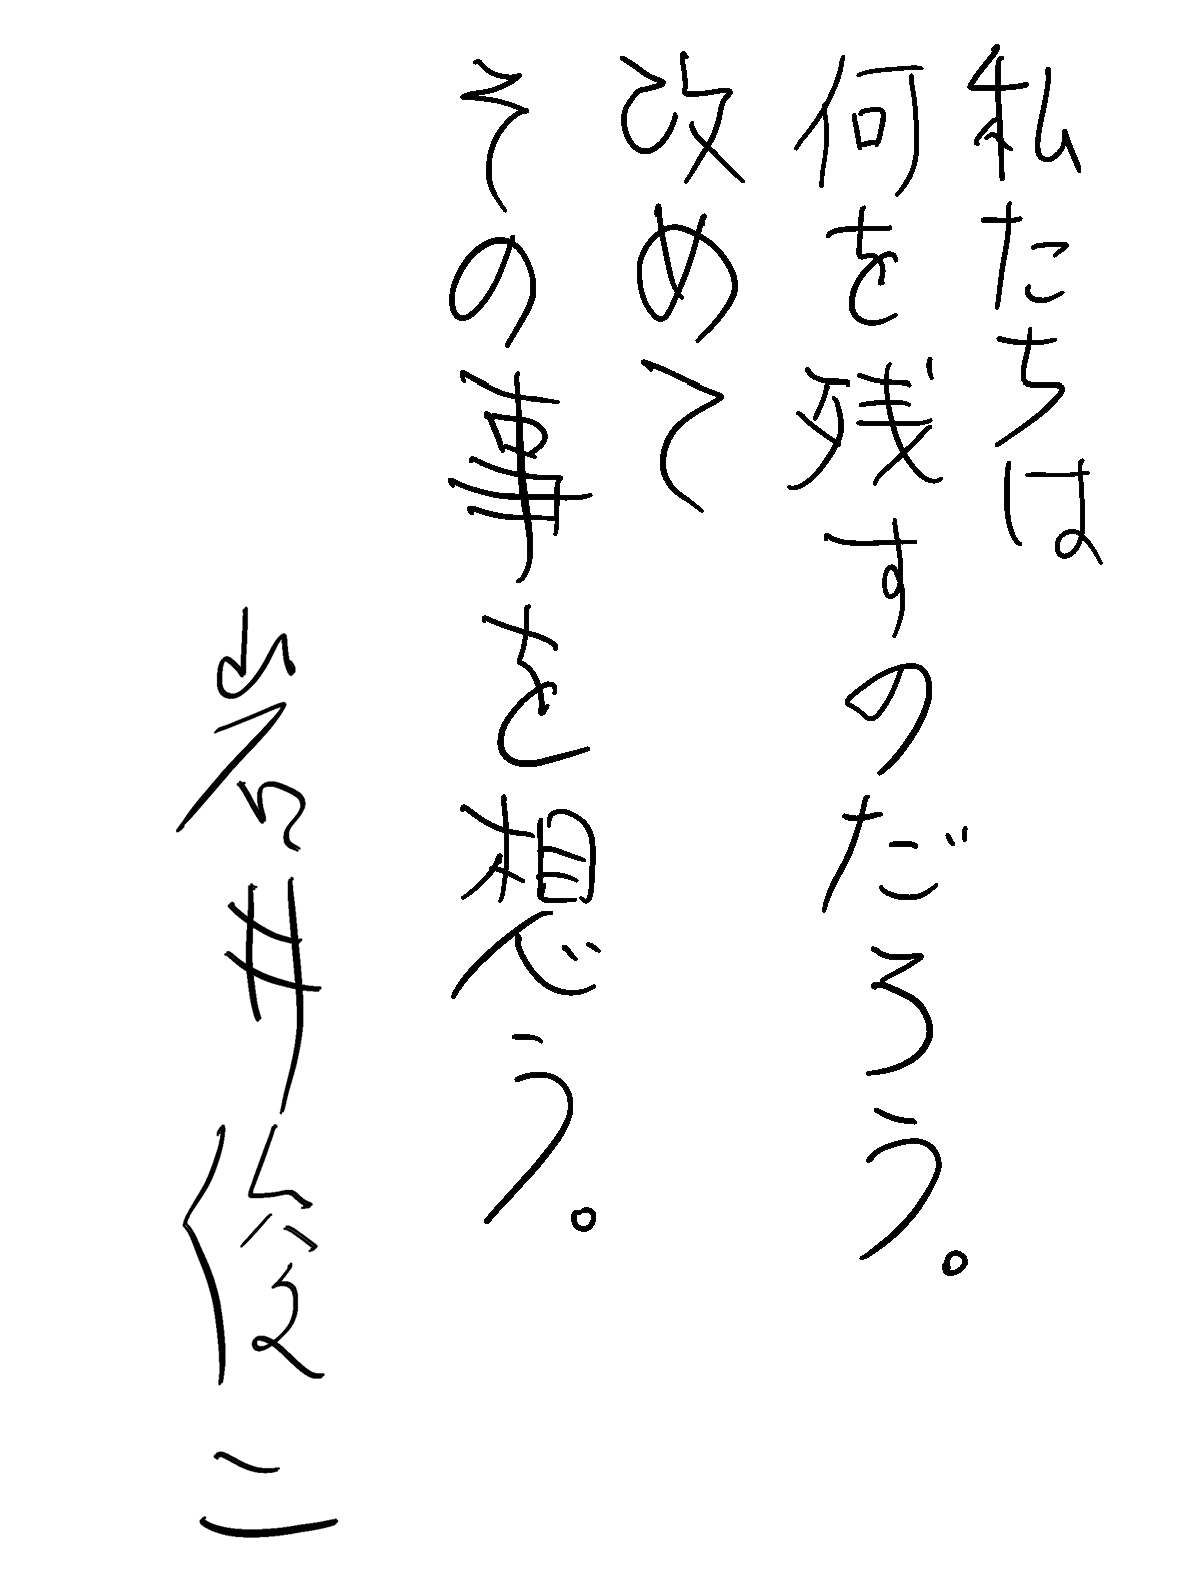 私たちは
何を残すのだろう。
改めて
その事を想う。
岩井俊二